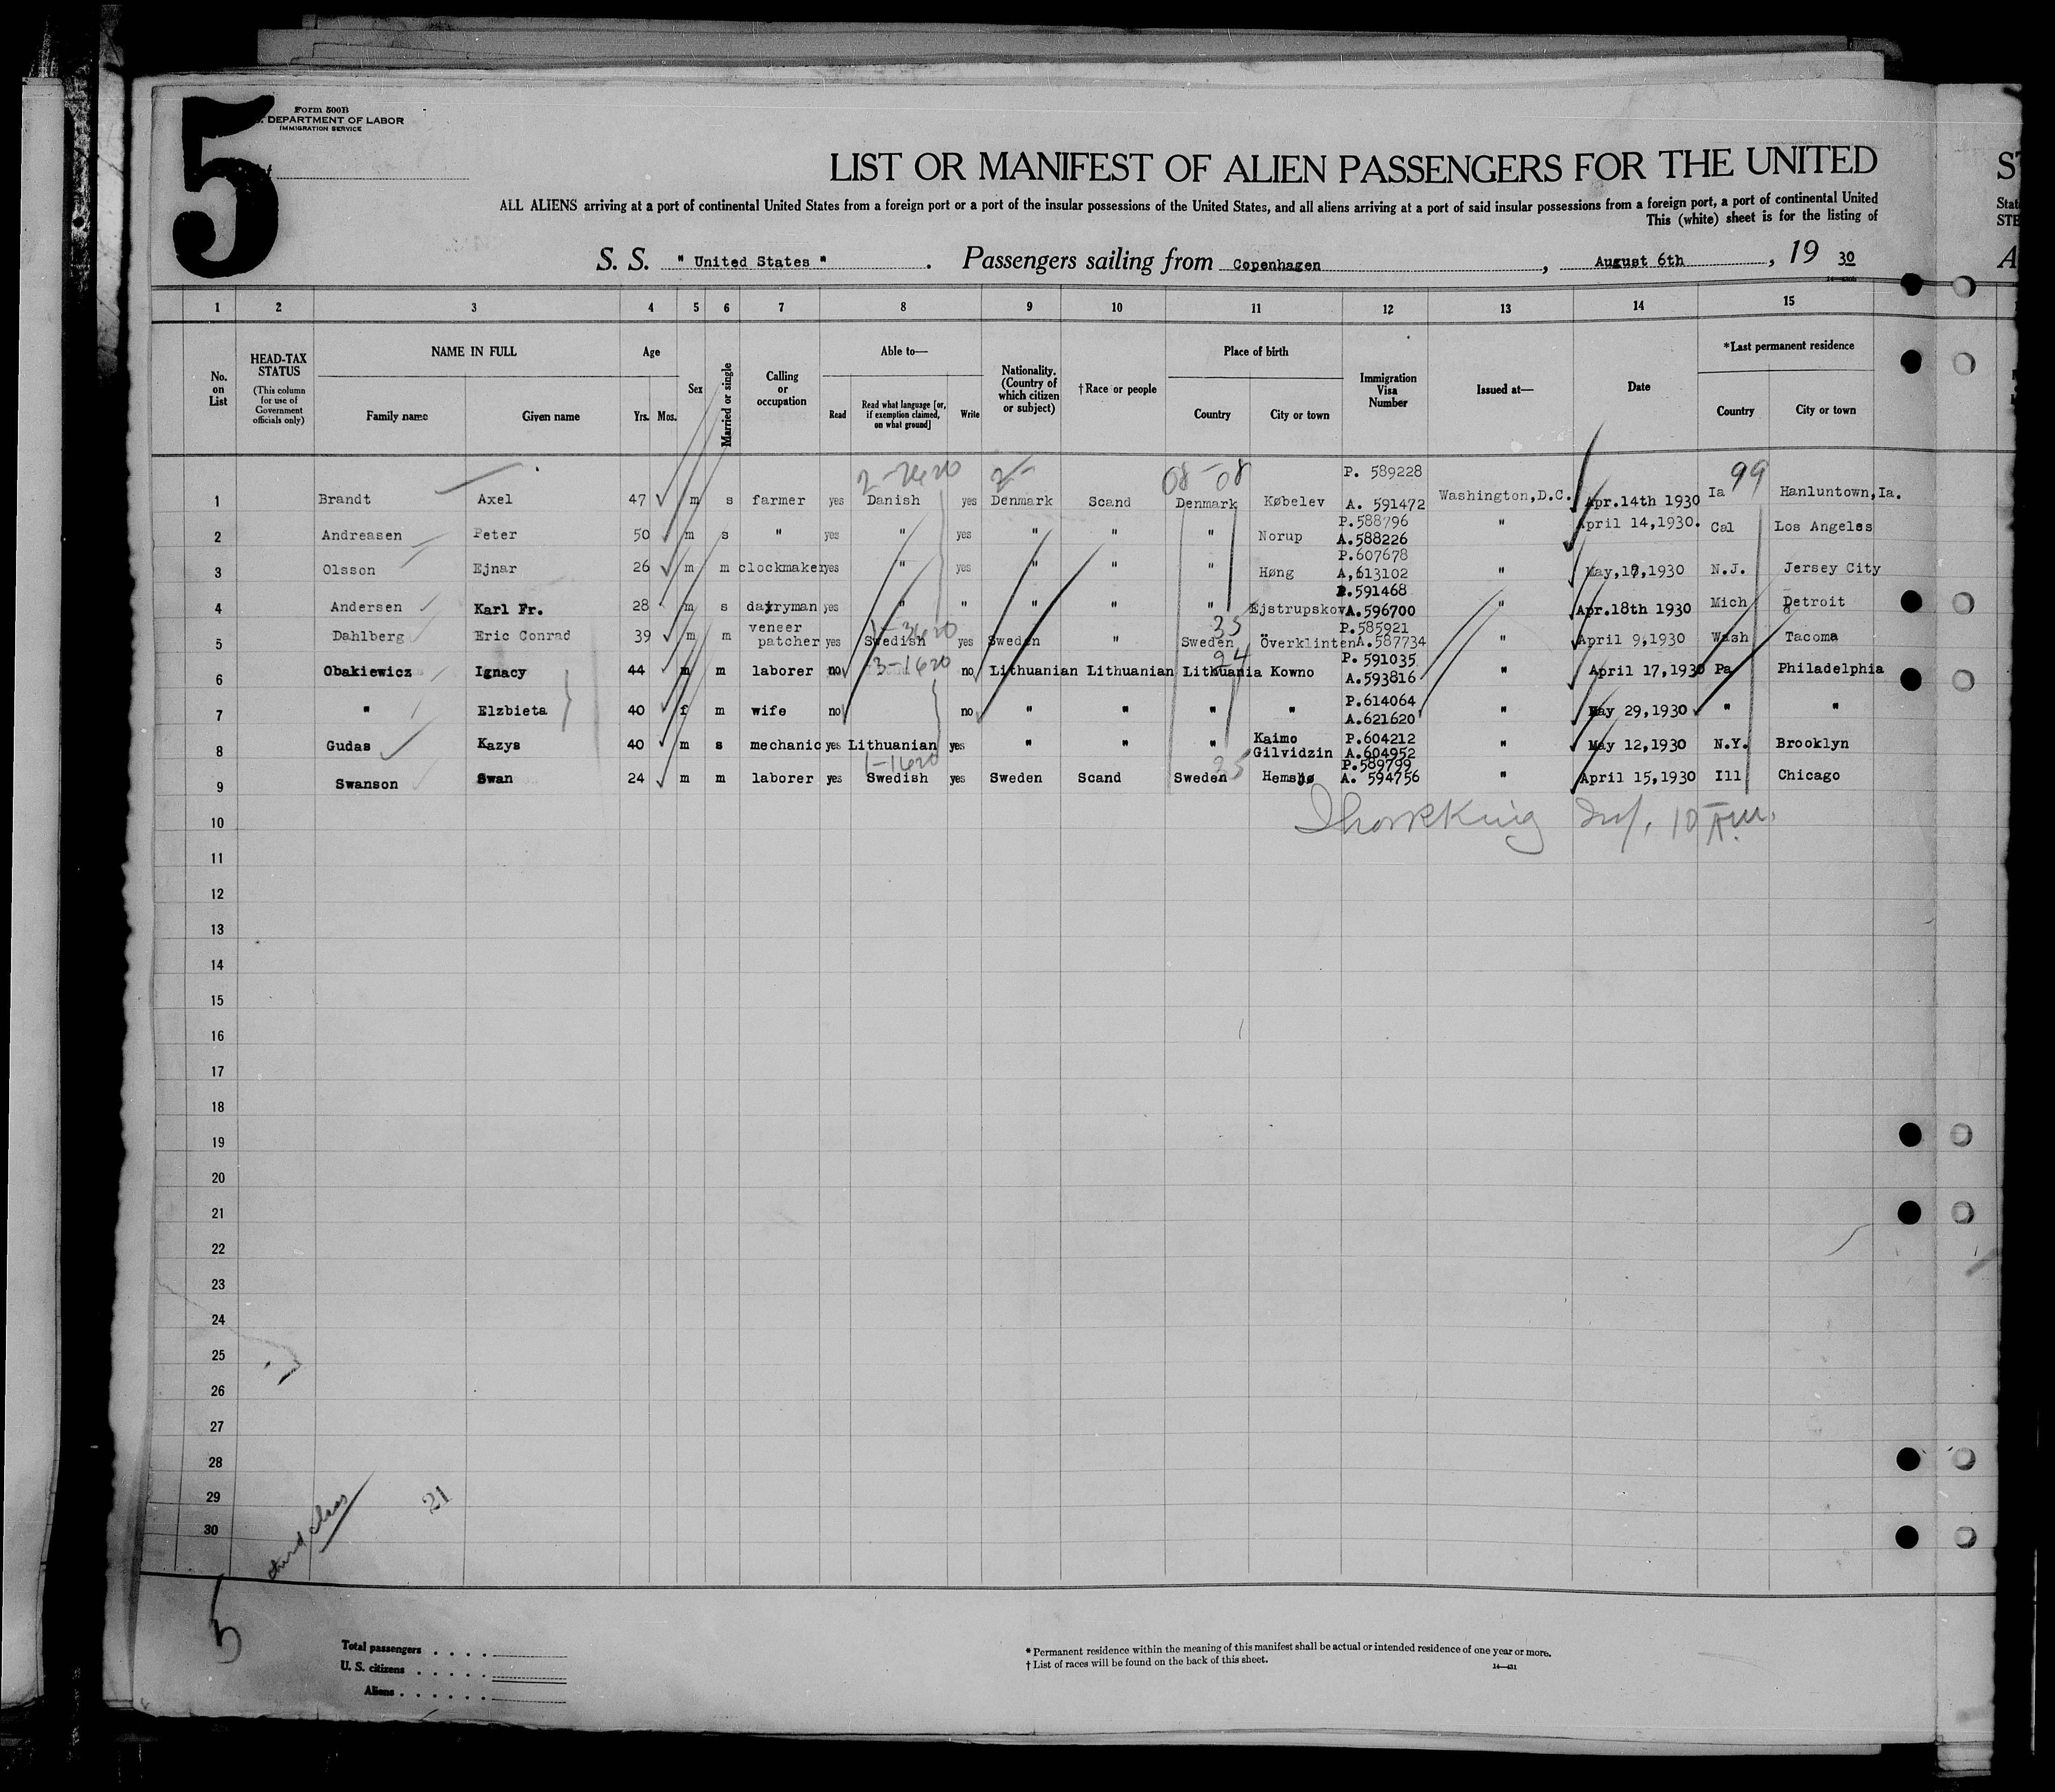 5
Form 500B
DEPARTMENT OF LABOR
IMMIGRATION SERVICE
LIST OR MANIFEST OF ALIEN PASSENGERS FOR THE UNITED
ALL ALIENS arriving at a port of continental United States from a foreign port or a port of the insular possessions of the United States, and all aliens arriving at a port of said insular possessions from a foreign port, a port of continental United
This (white) sheet is for the listing of
S. S. " United States " . Passengers sailing from Copenhagen , August 6th , 19 30
1 2 3 4 5 6 7 8 9 10 11 12 13 14 15
No. on List
HEAD-TAX STATUS (This column for use of Government officials only)
NAME IN FULL Family name Given name
Age Yrs. Mos.
Sex
Married or single
Calling or occupation
Able to— Read Read what language [or, if exemption claimed, on what ground] Write
Nationality. (Country of which citizen or subject)
†Race or people
Place of birth Country City or town
Immigration Visa Number
Issued at—
Date
*Last permanent residence Country City or town
2-2620 2- 08-08 99
1 Brandt Axel 47 m s farmer yes Danish yes Denmark Scand Denmark Købelev P. 589228 A. 591472 Washington,D.C. Apr.14th 1930 Ia Hanluntown,Ia.
2 Andreasen Peter 50 m s " yes " yes " " " Norup P.588796 A.588226 " April 14,1930. Cal Los Angeles
3 Olsson Ejnar 26 m m clockmaker yes " yes " " " Høng P.607678 A,613102 " May,1 ,1930 N.J. Jersey City
4 Andersen Karl Fr. 28 m s dairyman yes " " " " " Ejstrupskov P.591468 A.596700 " Apr.18th 1930 Mich Detroit
1-3620 35
5 Dahlberg Eric Conrad 39 m m veneer patcher yes Swedish yes Sweden " Sweden Överklinten P.585921 A.587734 " April 9,1930 Wash Tacoma
3-1620 24
6 Obakiewicz Ignacy 44 m m laborer no no Lithuanian Lithuanian Lithuania Kowno P. 591035 A.593816 " April 17,1930 Pa Philadelphia
7 " Elzbieta 40 f m wife no no " " " " P.614064 A.621620 " May 29,1930 " "
8 Gudas Kazys 40 m s mechanic yes Lithuanian yes " " " Kaimo Gilvidzin P.604212 A.604952 " May 12,1930 N.Y. Brooklyn
1-1620 35
9 Swanson Swan 24 m m laborer yes Swedish yes Sweden Scand Sweden Hemsjø P.589799 A. 594756 " April 15,1930 Ill Chicago
10 10 A.M.
11
12
13
14
15
16
17
18
19
20
21
22
23
24
25
26
27
28
29
30
third class
21
5
Total passengers
U. S. citizens
Aliens
* Permanent residence within the meaning of this manifest shall be actual or intended residence of one year or more.
† List of races will be found on the back of this sheet.
14—431